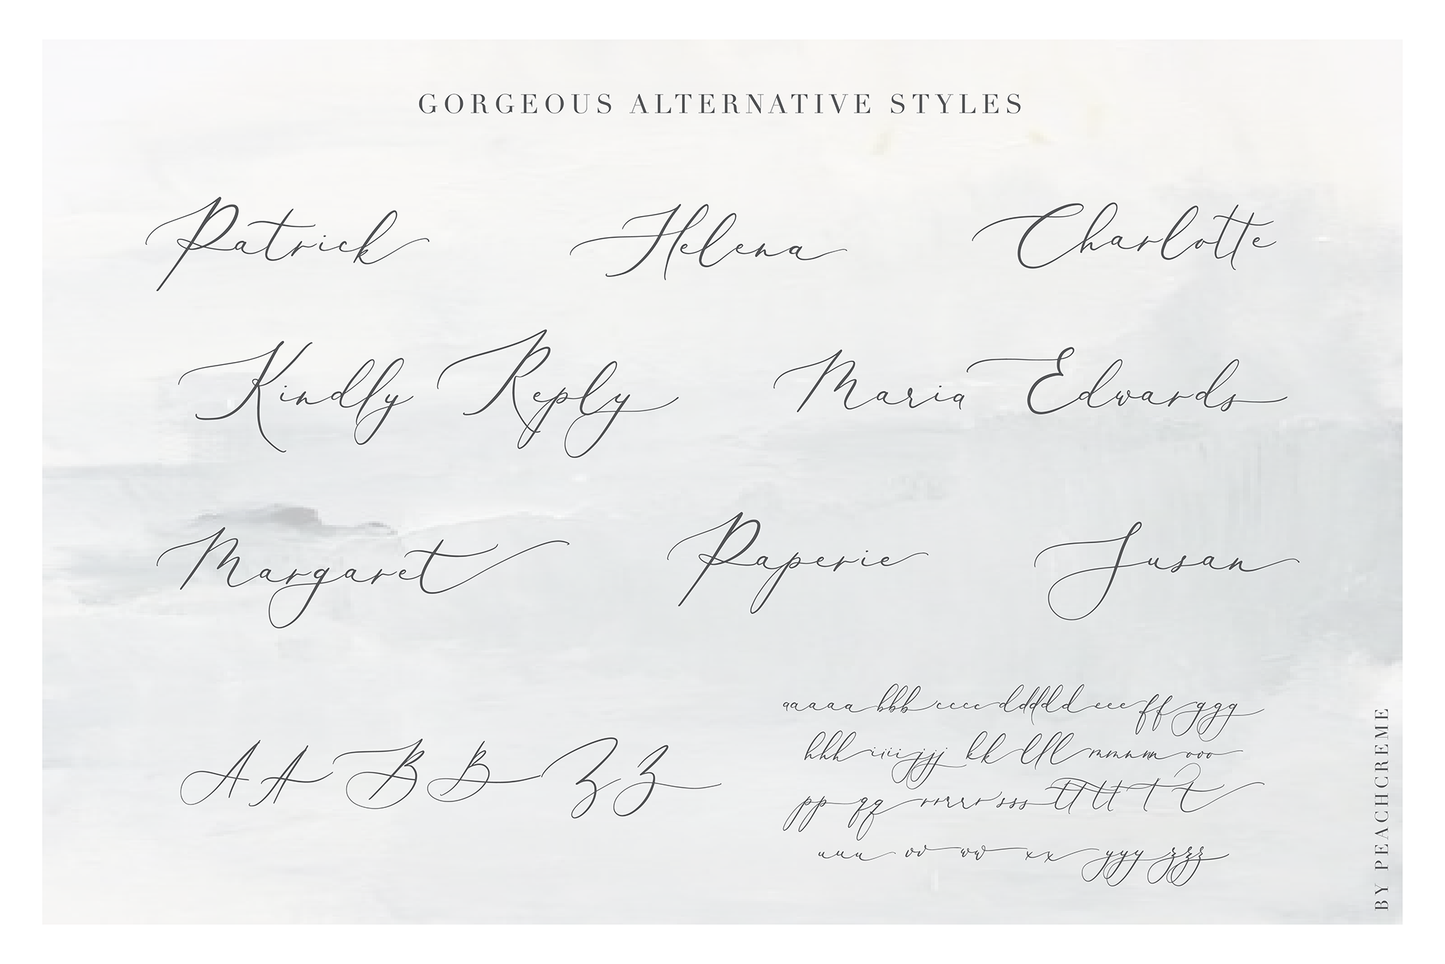 GORGEOUS ALTERNATIVE STYLES
Patrick Helena Charlotte
Kindly Reply Maria Edwards
Margaret Paperie Susan
A A B B Z Z
aaaaa bbb cccc ddddd eee ff ggg
hhh iiii jjj kk lll mmnnn ooo
pp qq rrrrr sss tt tt t t
uuu vv ww xx yyy zzz
BY PEACHCREME